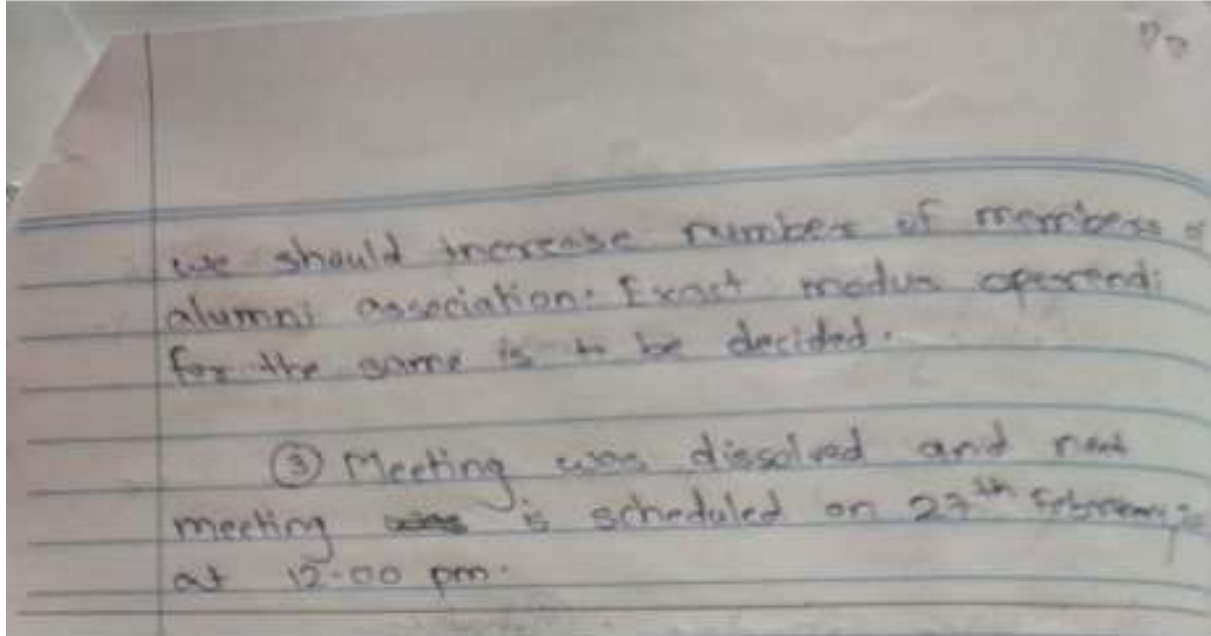 we should increase number of members
alumni association. Exact modus operendi
for the same is to be decided.
③ Meeting was dissolved and next
meeting is scheduled on 27th February
at 12.00 pm.